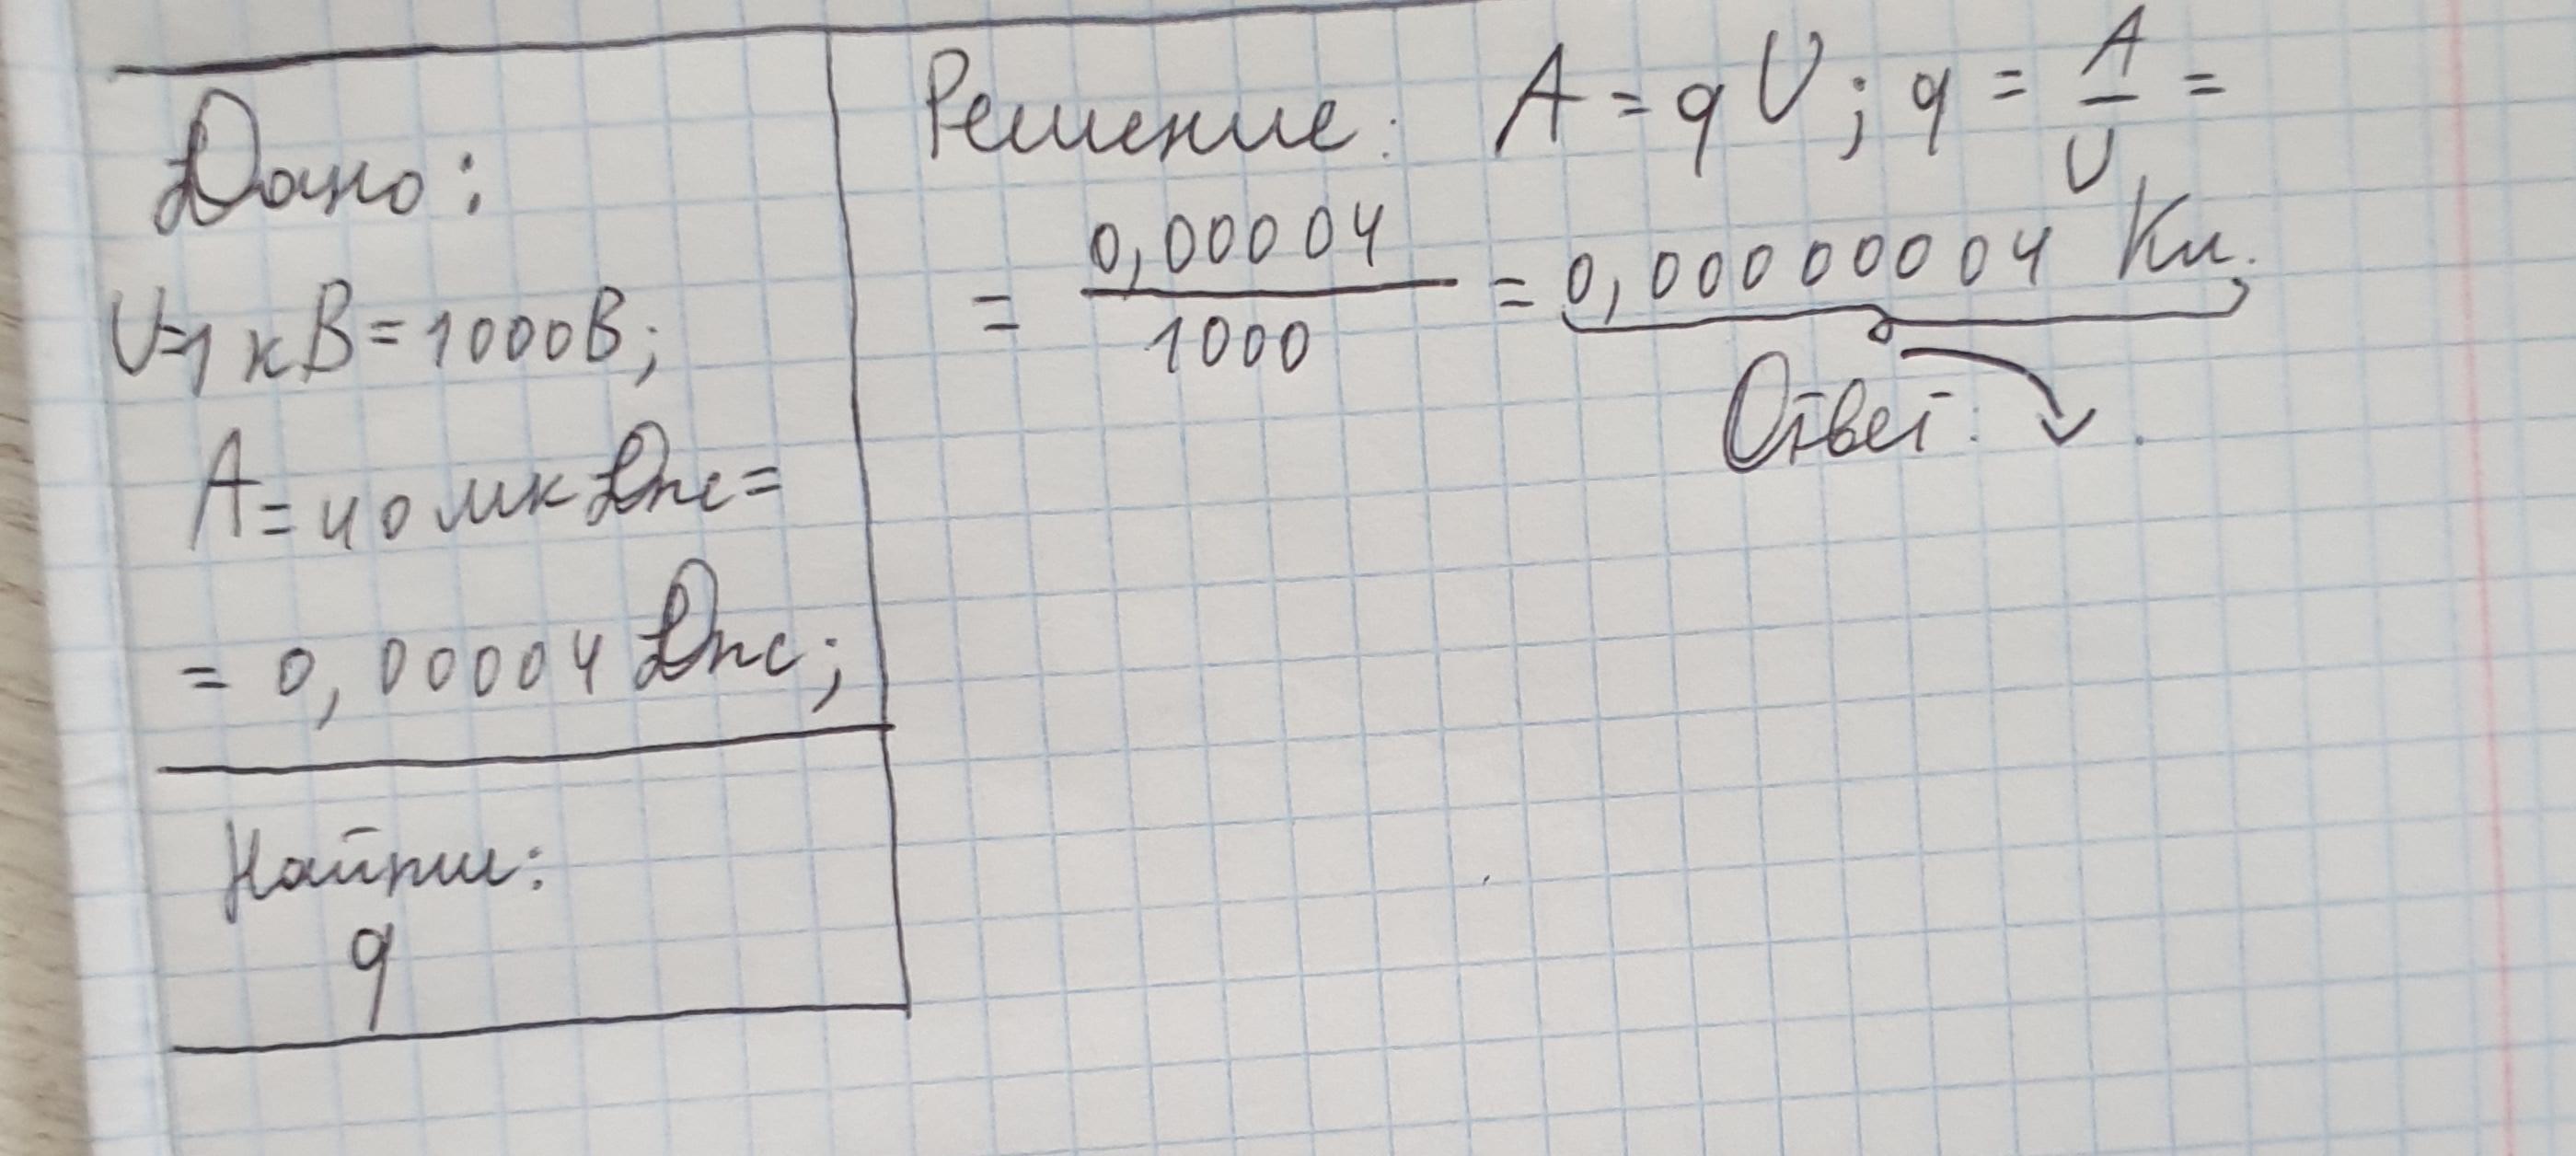 Дано:
U=1 кВ=1000В;
A=40 мкДж=
= 0,00004 Дж;
Найти:
q
Решение: A = qU; q = A/U =
= 0,00004/1000 = 0,00000004 Кл.
Ответ: